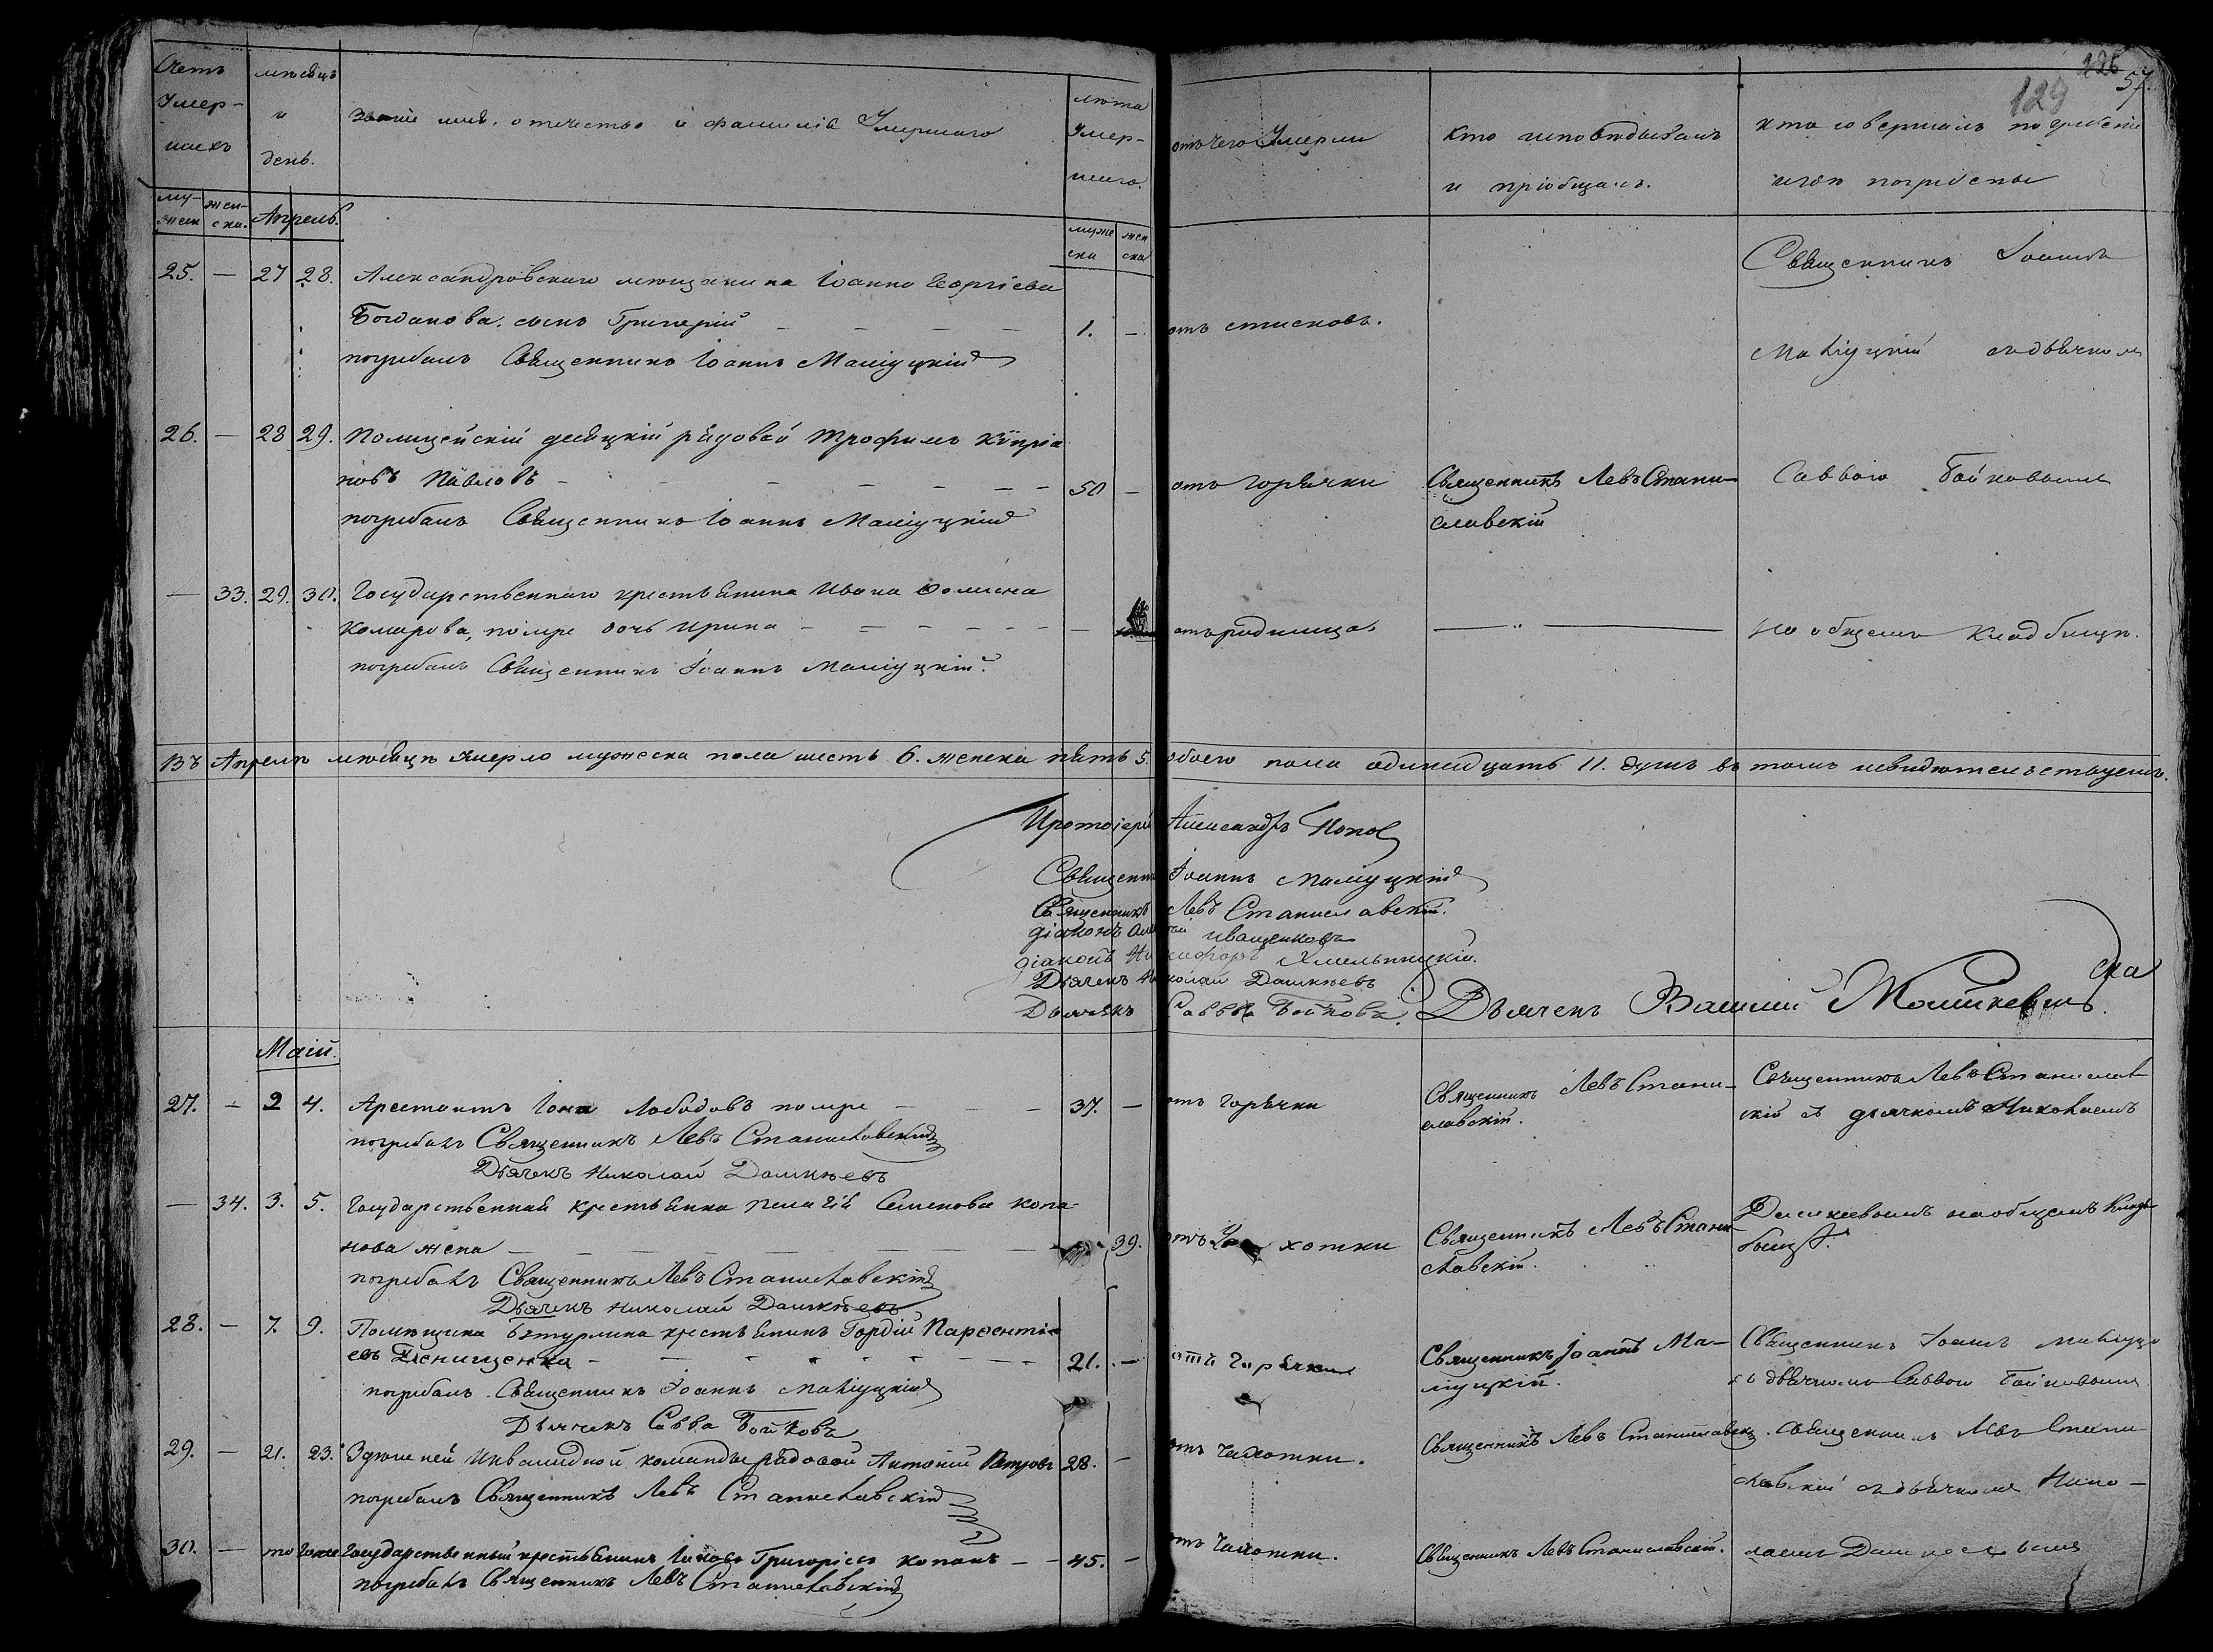 226
57.
129
Счетъ
Умер-
шихъ
мѣсяцъ
и
день.
Званіе имя, отчество и фамилія Умершаго
лѣта
Умер-
шаго.
отъ чего Умерли
Кто исповѣдывалъ
и пріобщалъ.
кто совершалъ погребеніе
и гдѣ погребены
му-
жеск
жен-
ска.
Апрель.
муже
ска
жен
ска
25. — 27 28. Александровскаго мѣщанина Іоанна Георгіева
Богданова, сынъ Григорій — — — — 1. —
погребалъ Священникъ Іоаннъ Маліуцкій
отъ списковъ.
Священникъ Іоаннъ
Маліуцкій съ дьячкомъ
26. — 28 29. Полицейскій десяцкій рядовой Трофимъ Кѵпріа
новъ Павловъ — — — — — — 50 —
погребалъ Священникъ Іоаннъ Маліуцкій
отъ горячки
Священникъ Левъ Стани-
славскій
Саввою Бойковымъ
— 33. 29. 30. Государственнаго крестьянина Ивана Фомина
Комарова, помре дочь Ирина — — — — — — —
погребалъ Священникъ Іоаннъ Маліуцкій.
отъ родимца.
— " —
на общемъ кладбищѣ.
Въ Апрелѣ мѣсяцѣ умерло мужеска пола шесть 6. женска пять 5. обоего пола одинадцать 11. душъ въ томъ и свидѣтельствуемъ.
Протоіерей Александръ Поповъ
Священникъ Іоаннъ Маліуцкій
Священникъ Левъ Станиславскій.
діаконъ Иващенковъ
діаконъ Никифоръ Хмельницкій.
Дьячекъ Николай Дашкѣевъ
Дьячекъ Савва Бойковъ.
Дьячекъ
Маій.
27. — 2 4. Арестантъ Іона Лободовъ помре — — — 37. —
погребалъ Священникъ Левъ Станиславскій
Дьячекъ Николай Дашкѣевъ
отъ горячки
Священникъ Левъ Стани-
славскій.
Священникъ Левъ Станислав
скій съ дьячкомъ Николаемъ
— 34. 3. 5. Государственная крестьянка Пелагія Семенова Копа-
нова жена — — — — — — 39.
погребалъ Священникъ Левъ Станиславскій
Дьячекъ Николай Дашкѣевъ
отъ чахотки
Священникъ Левъ Стани
славскій.
Дашкеевымъ на общемъ клад-
бищѣ.
28. — 7. 9. Помѣщика Бутурлина крестьянинъ Гордій Парѳентіе
евъ — — — — — — — 21. —
погребалъ Священникъ Іоаннъ Маліуцкій
Дьячекъ Савва Бойковъ
отъ горячки
Священникъ Іоаннъ Ма-
ліуцкій.
Священникъ Іоаннъ Маліуцк
съ дьячкомъ Саввою Бойковымъ
29. — 21. 23. Здѣшней Инвалидной команды рядовой Антоній Петровъ 28. —
погребалъ Священникъ Левъ Станиславскій
отъ чахотки.
Священникъ Левъ Станиславск
Священникъ Левъ Стани-
славскій съ дьячкомъ Нико-
30. — того же Государственный крестьянинъ Іаковъ Григорьевъ Копанъ — — 45. —
погребалъ Священникъ Левъ Станиславскій
отъ чахотки.
Священникъ Левъ Станиславскій.
лаемъ Дашкеевымъ